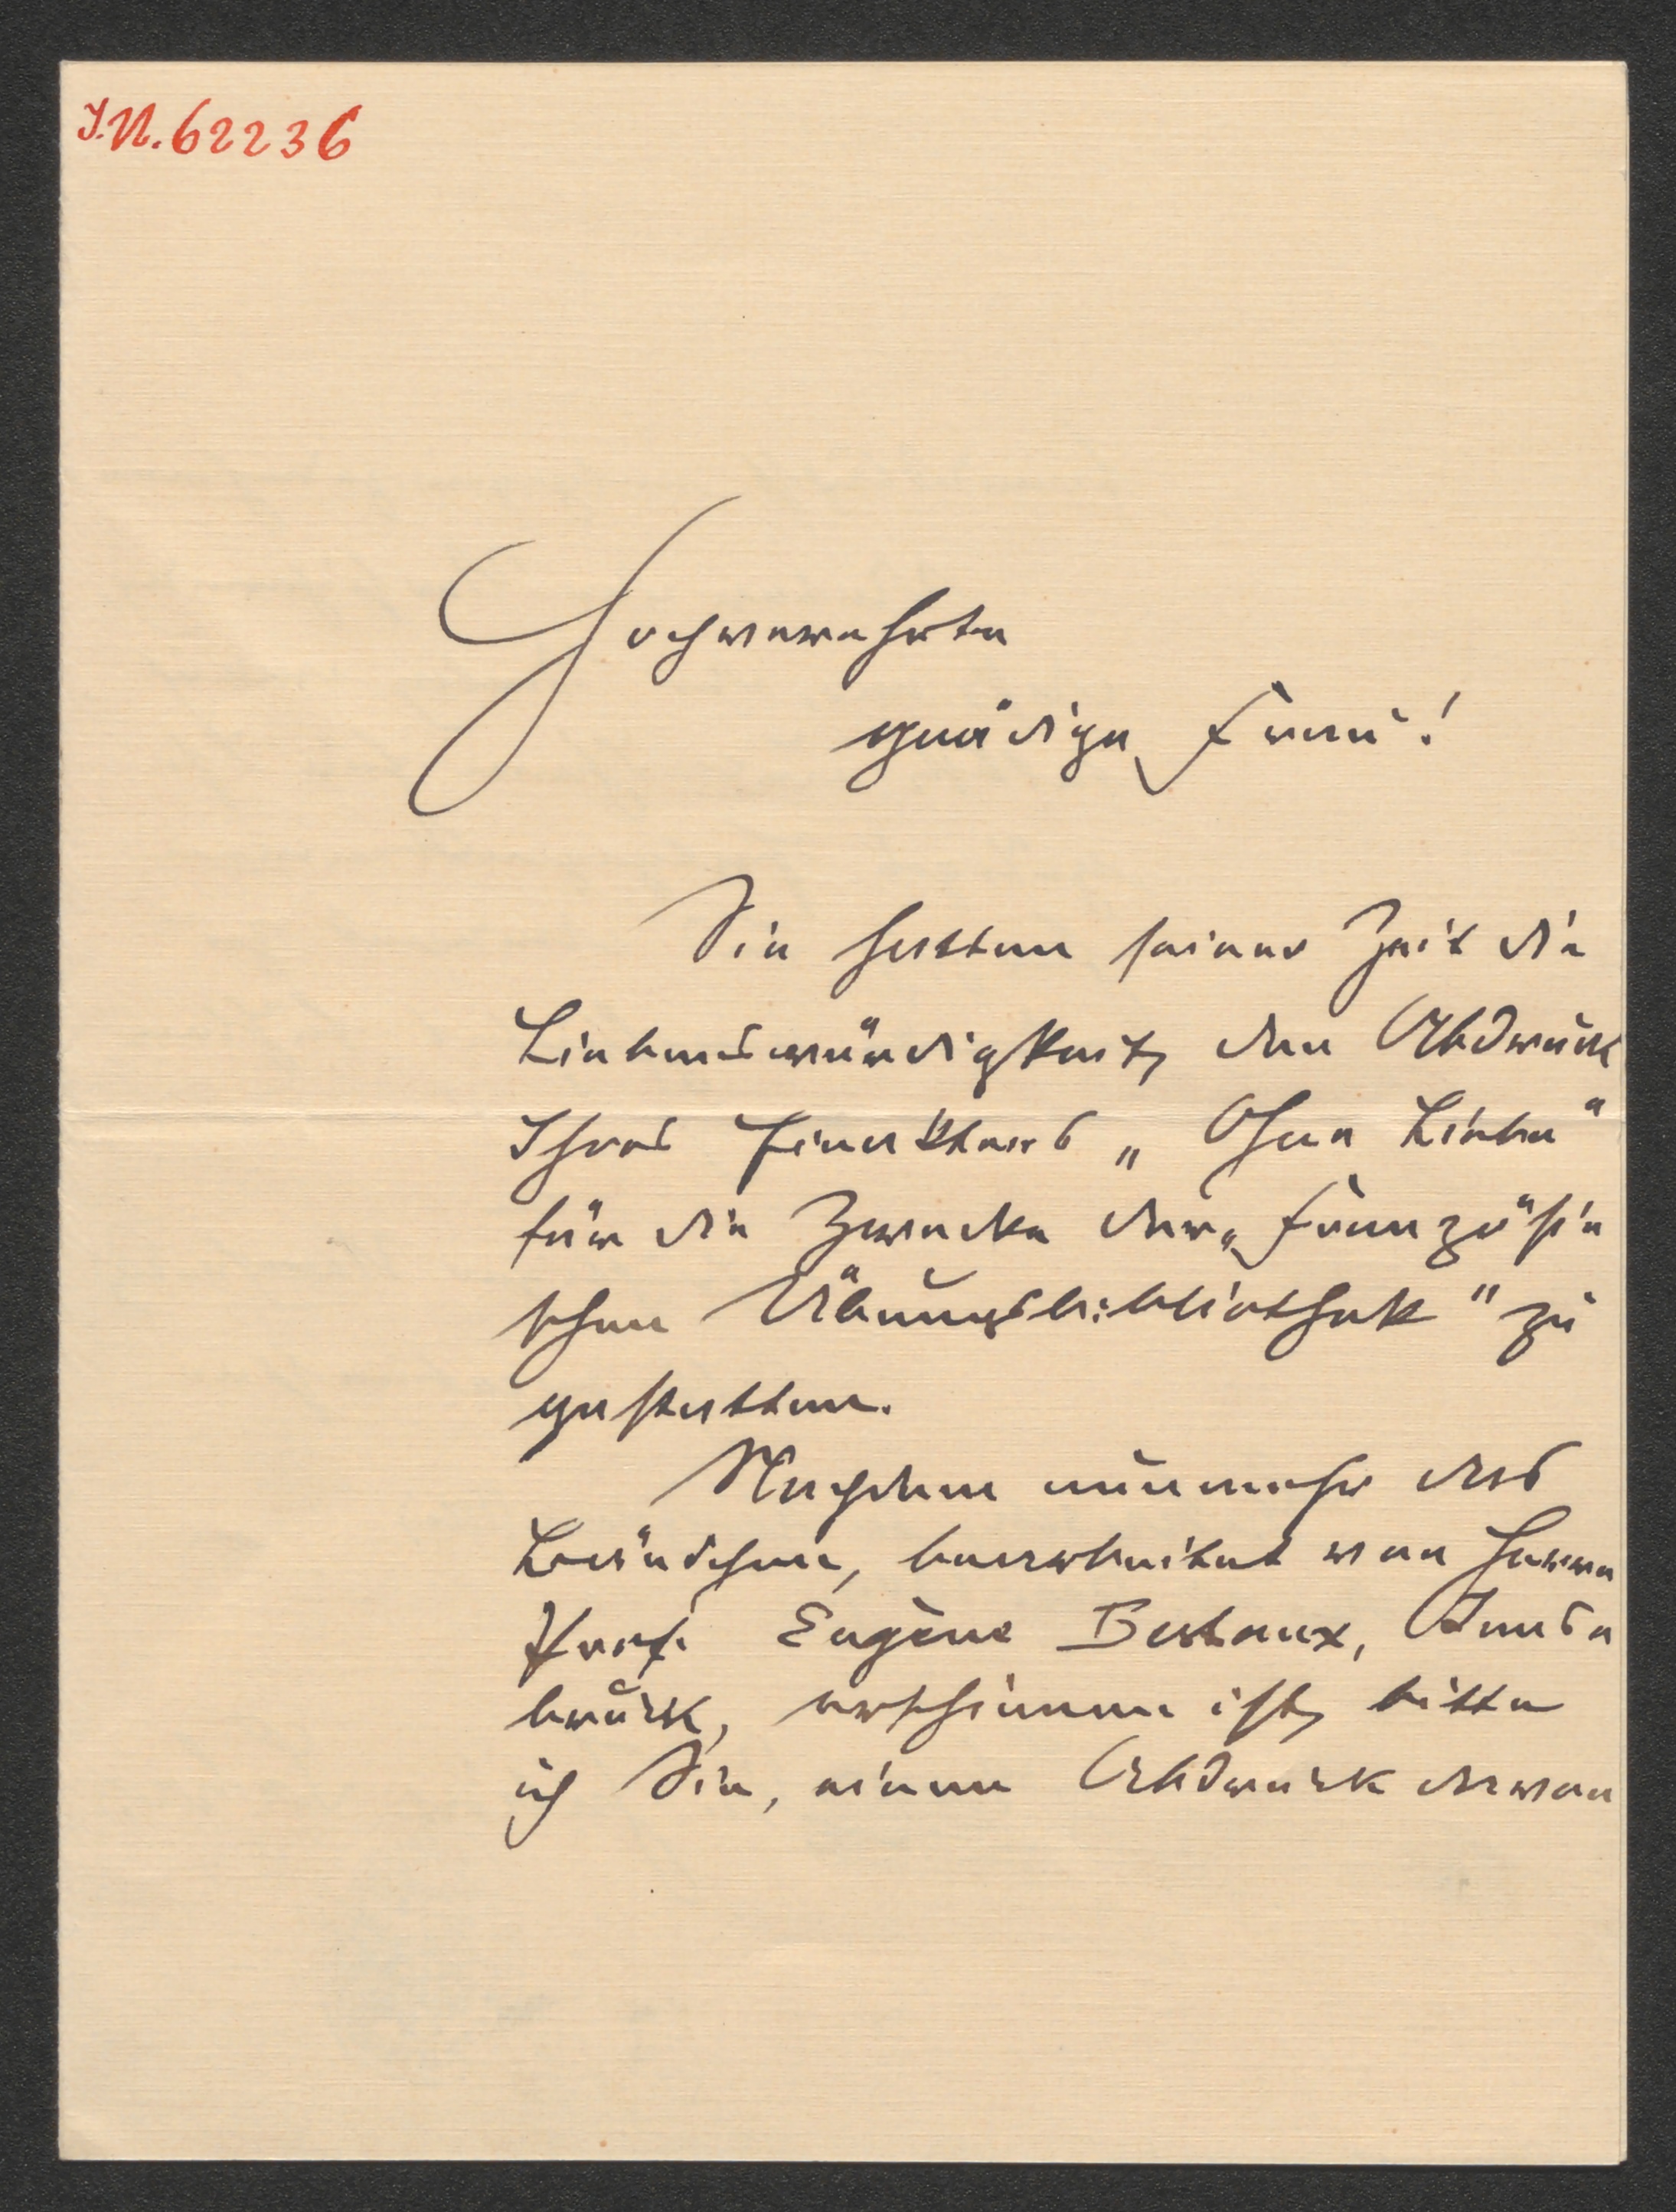 J.N. 62236
Hochverehrte
gnädige Frau!
Sie hatten seiner Zeit die
Liebenswürdigkeit, den Abdruck
Ihres Einakters „Ohne Liebe"
für die Zwecke der „Französi
schen Übungsbibliothek" zu
gestatten.
Nachdem nunmehr das
Bändchen, bearbeitet von Herrn
Prof. Eugène Bestaux, Inns
bruck, erschienen ist, bitte
ich Sie, einen Abdruck davon